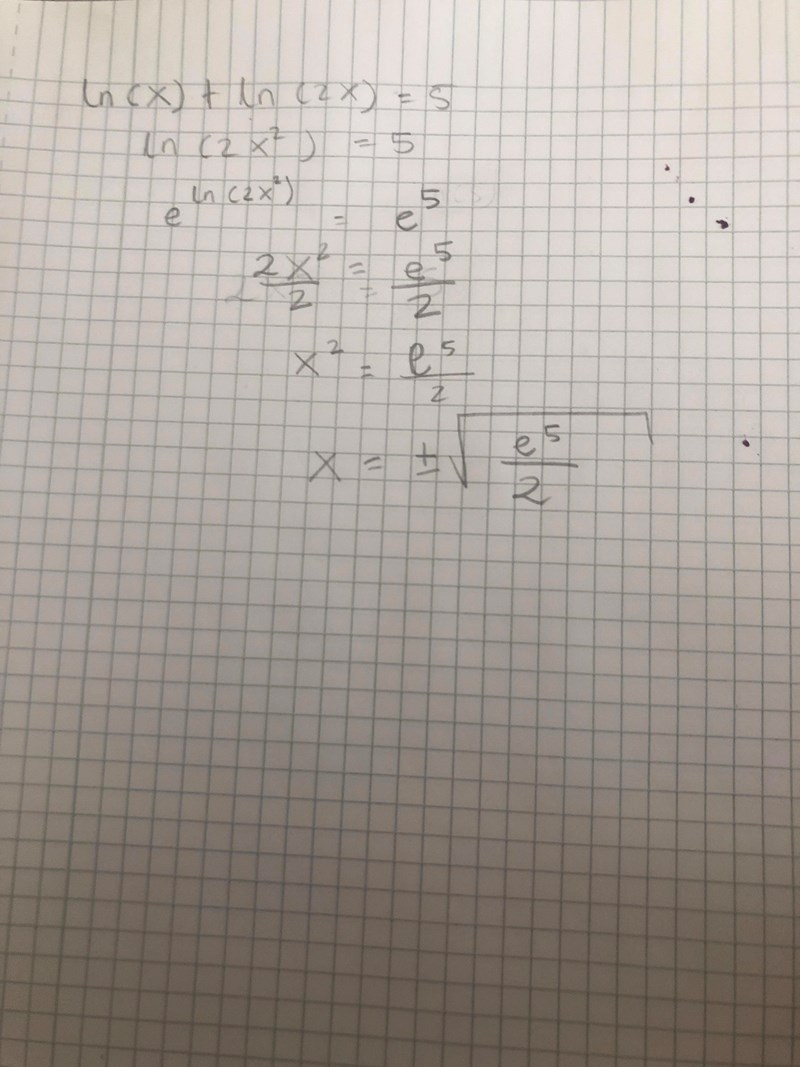 ln(x) + ln(2x) = 5
ln(2x²) = 5
e^(ln(2x²)) = e⁵
2x²/2 = e⁵/2
x² = e⁵/2
x = ±√(e⁵/2)